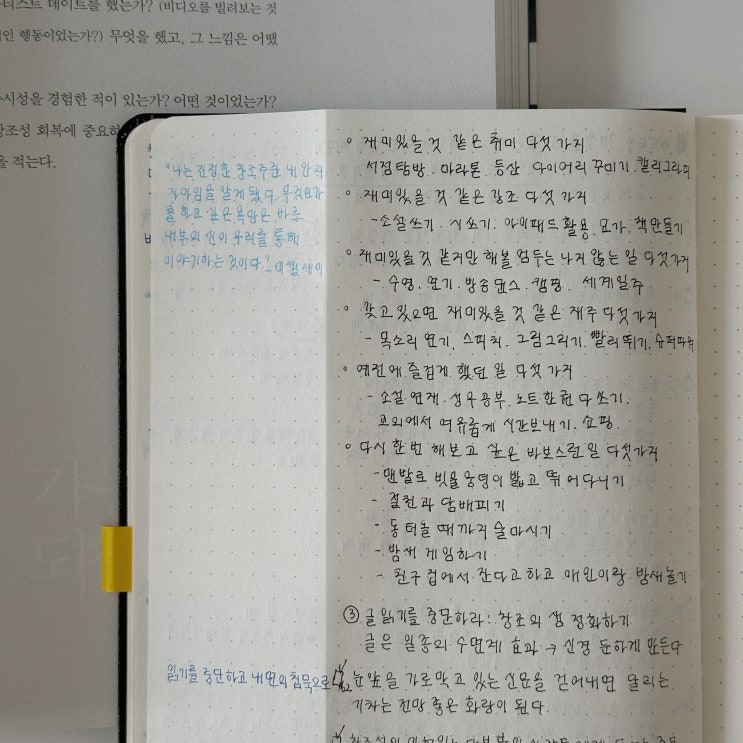 티스트 데이트를 했는가? (비디오를 빌려보는 것
인 행동이었는가?) 무엇을 했고, 그 느낌은 어땠
시성을 경험한 적이 있는가? 어떤 것이었는가?
창조성 회복에 중요하
을 적는다.
"나는 진정한 창조주란 내 안의
자아임을 알게 됐다. 무엇인가
를 하고 싶은 욕망은 바로
내부의 신이 우리를 통해
이야기하는 것이다"
◦ 재미있을 것 같은 취미 다섯 가지
서점탐방. 마라톤. 등산 다이어리 꾸미기. 캘리그라피
◦ 재미있을 것 같은 강조 다섯 가지
- 소설쓰기. 시쓰기. 아이패드 활용. 요가. 책만들기
◦ 재미있을 것 같지만 해볼 엄두는 나지 않는 일 다섯가지
- 수영. 연기. 방송댄스. 캠핑. 세계일주
◦ 갖고 있으면 재미있을 것 같은 재주 다섯 가지
- 목소리 연기. 스피치. 그림그리기. 빨리 뛰기. 슈퍼파워
◦ 예전에 즐겁게 했던 일 다섯 가지
- 소설 연재. 성우공부. 노트 한 권 다 쓰기.
교외에서 여유롭게 시간보내기. 쇼핑.
◦ 다시 한번 해보고 싶은 바보스런 일 다섯가지
- 맨발로 빗물 웅덩이 밟고 뛰어다니기
- 절친과 담배피기
- 동 터올 때까지 술마시기
- 밤새 게임하기
- 친구 집에서 잔다고 하고 애인이랑 밤새 놀기
③ 글 읽기를 중단하라: 창조의 샘 정화하기
글은 일종의 수면제 효과 → 신경 둔하게 만든다
읽기를 중단하고 내면의 침묵으로
눈앞을 가로막고 있는 신문을 걷어내면 달리는
기차는 전망 좋은 화랑이 된다.